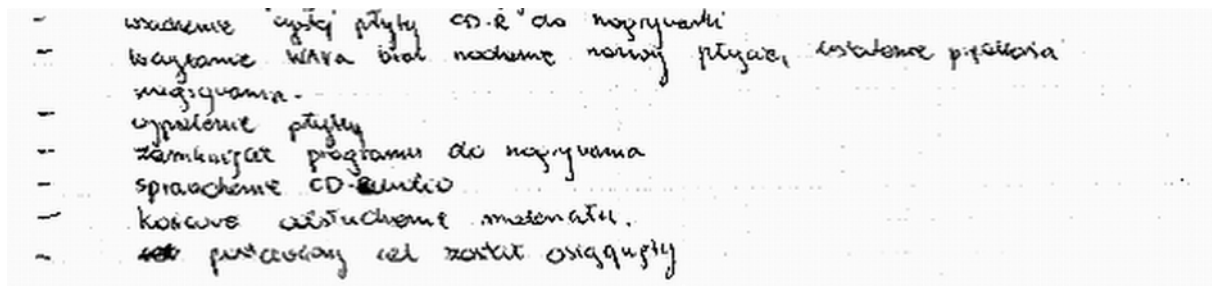 - wsadzenie czystej płyty CD-R do nagrywarki
- wczytanie WAVa oraz nadanie nazwy płycie, ustalenie prędkości
nagrywania.
- wypalenie płyty
- zamknięcie programu do nagrywania
- sprawdzenie CD-Audio
- końcowe odsłuchanie materiału.
- postawiony cel został osiągnięty